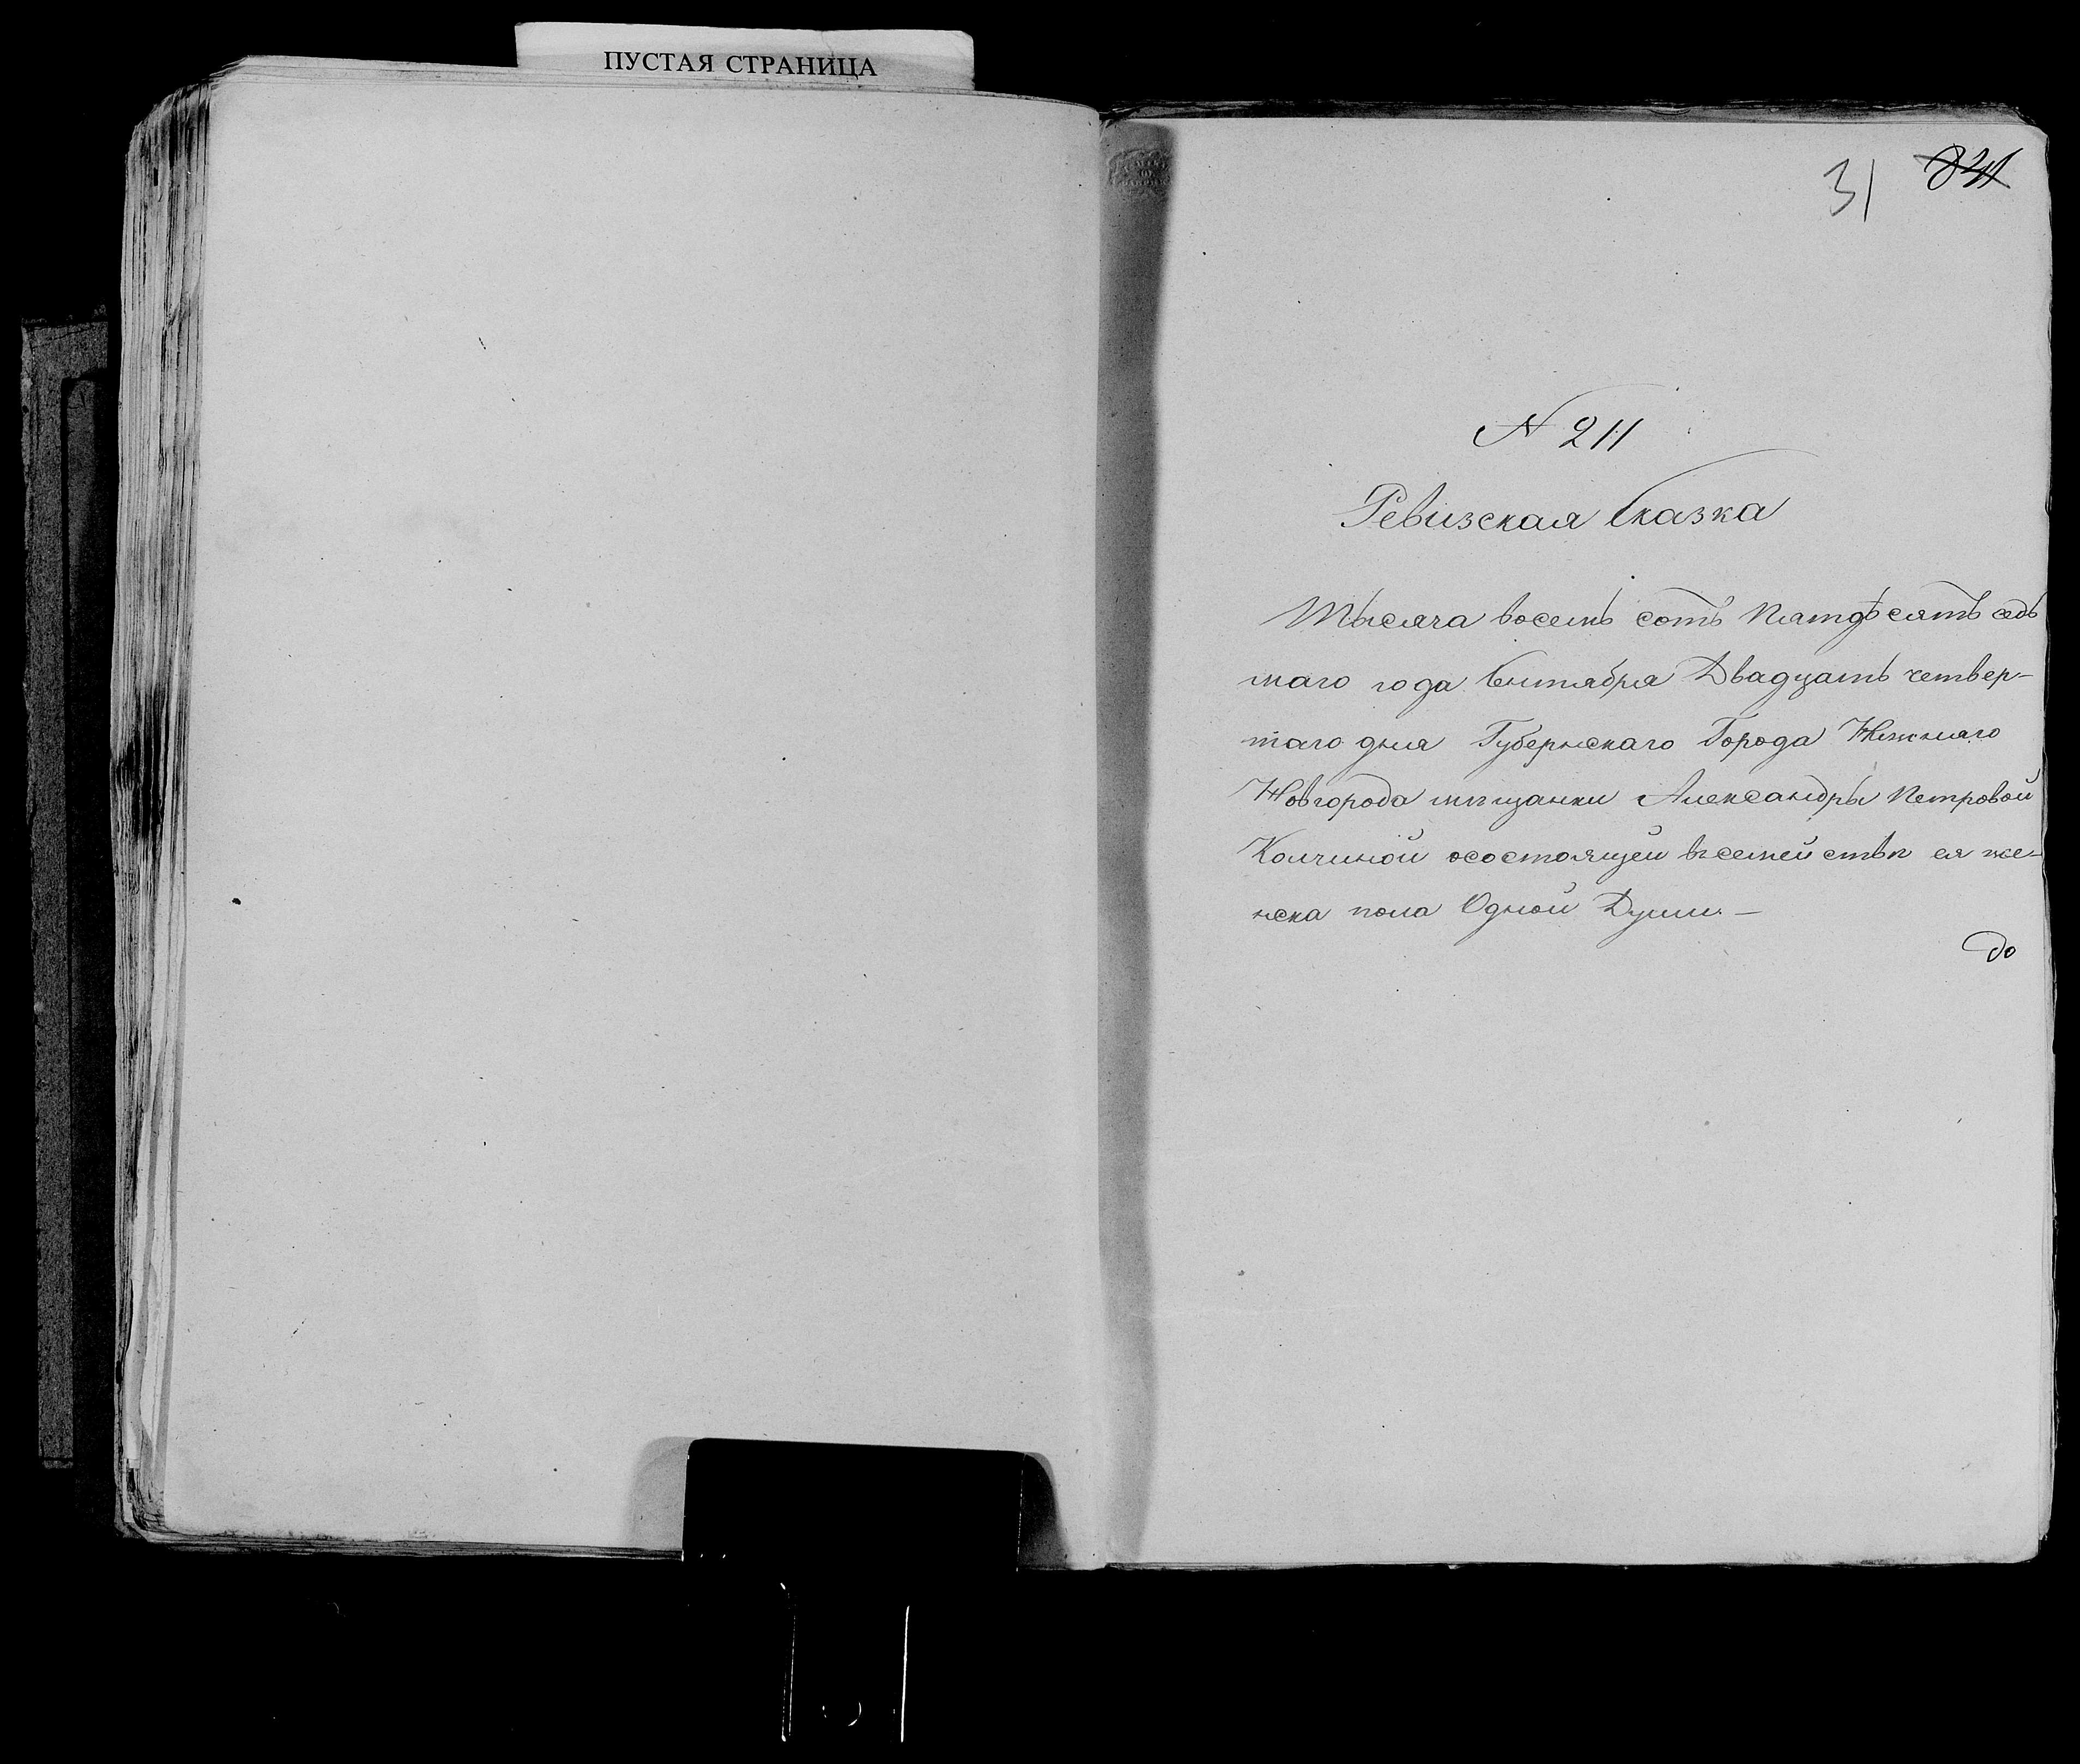 ПУСТАЯ СТРАНИЦА
31
N 211
Ревизская Сказка
Тысяча восемь сотъ Пятдѣсятъ седь
маго года Сентября Двадцать четвер-
таго дня Губернскаго Города Нижняго
Новгорода мѣщанки Александры Петровой
Колчиной осостоящей всемействѣ ея же-
нска пола Одной Души. –
до